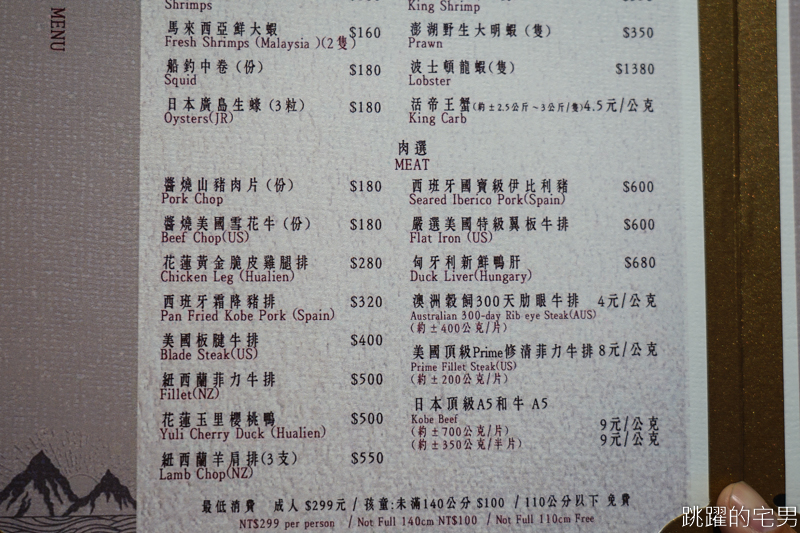 MENU
Shrimps
馬來西亞鮮大蝦 $160
Fresh Shrimps (Malaysia )(2隻)
船釣中卷 (份) $180
Squid
日本廣島生蠔 (3粒) $180
Oysters(JR)
King Shrimp
澎湖野生大明蝦 (隻) $350
Prawn
波士頓龍蝦(隻) $1380
Lobster
活帝王蟹(約±2.5公斤~3公斤/隻)4.5元/公克
King Carb
肉選
MEAT
醬燒山豬肉片 (份) $180
Pork Chop
醬燒美國雪花牛 (份) $180
Beef Chop(US)
花蓮黃金脆皮雞腿排 $280
Chicken Leg (Hualien)
西班牙霜降豬排 $320
Pan Fried Kobe Pork (Spain)
美國板腱牛排 $400
Blade Steak(US)
紐西蘭菲力牛排 $500
Fillet(NZ)
花蓮玉里櫻桃鴨 $500
Yuli Cherry Duck (Hualien)
紐西蘭羊肩排(3支) $550
Lamb Chop(NZ)
西班牙國寶級伊比利豬 $600
Seared Iberico Pork(Spain)
嚴選美國特級翼板牛排 $600
Flat Iron (US)
匈牙利新鮮鴨肝 $680
Duck Liver(Hungary)
澳洲穀飼300天肋眼牛排 4元/公克
Australian 300-day Rib eye Steak(AUS)
(約±400公克/片)
美國頂級Prime修清菲力牛排 8元/公克
Prime Fillet Steak(US)
(約±200公克/片)
日本頂級A5和牛 A5
Kobe Beef
(約±700公克/片) 9元/公克
(約±350公克/半片) 9元/公克
最低消費 成人 $299元 / 孩童:未滿140公分 $100 / 110公分以下 免費
NT$299 per person / Not Full 140cm NT$100 / Not Full 110cm Free
跳躍的宅男